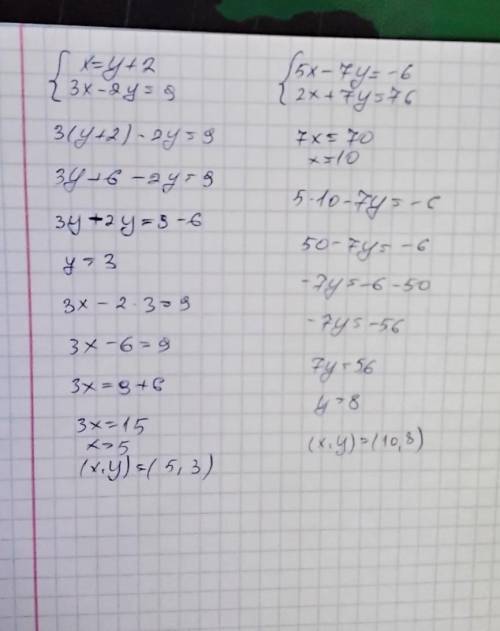 { x=y+2
3x-2y=9
3(y+2)-2y=9
3y+6-2y=9
3y-2y=9-6
y=3
3x-2·3=9
3x-6=9
3x=9+6
3x=15
x=5
(x,y)=(5,3)
{ 5x-7y=-6
2x+7y=76
7x=70
x=10
5·10-7y=-6
50-7y=-6
-7y=-6-50
-7y=-56
7y=56
y=8
(x,y)=(10,8)